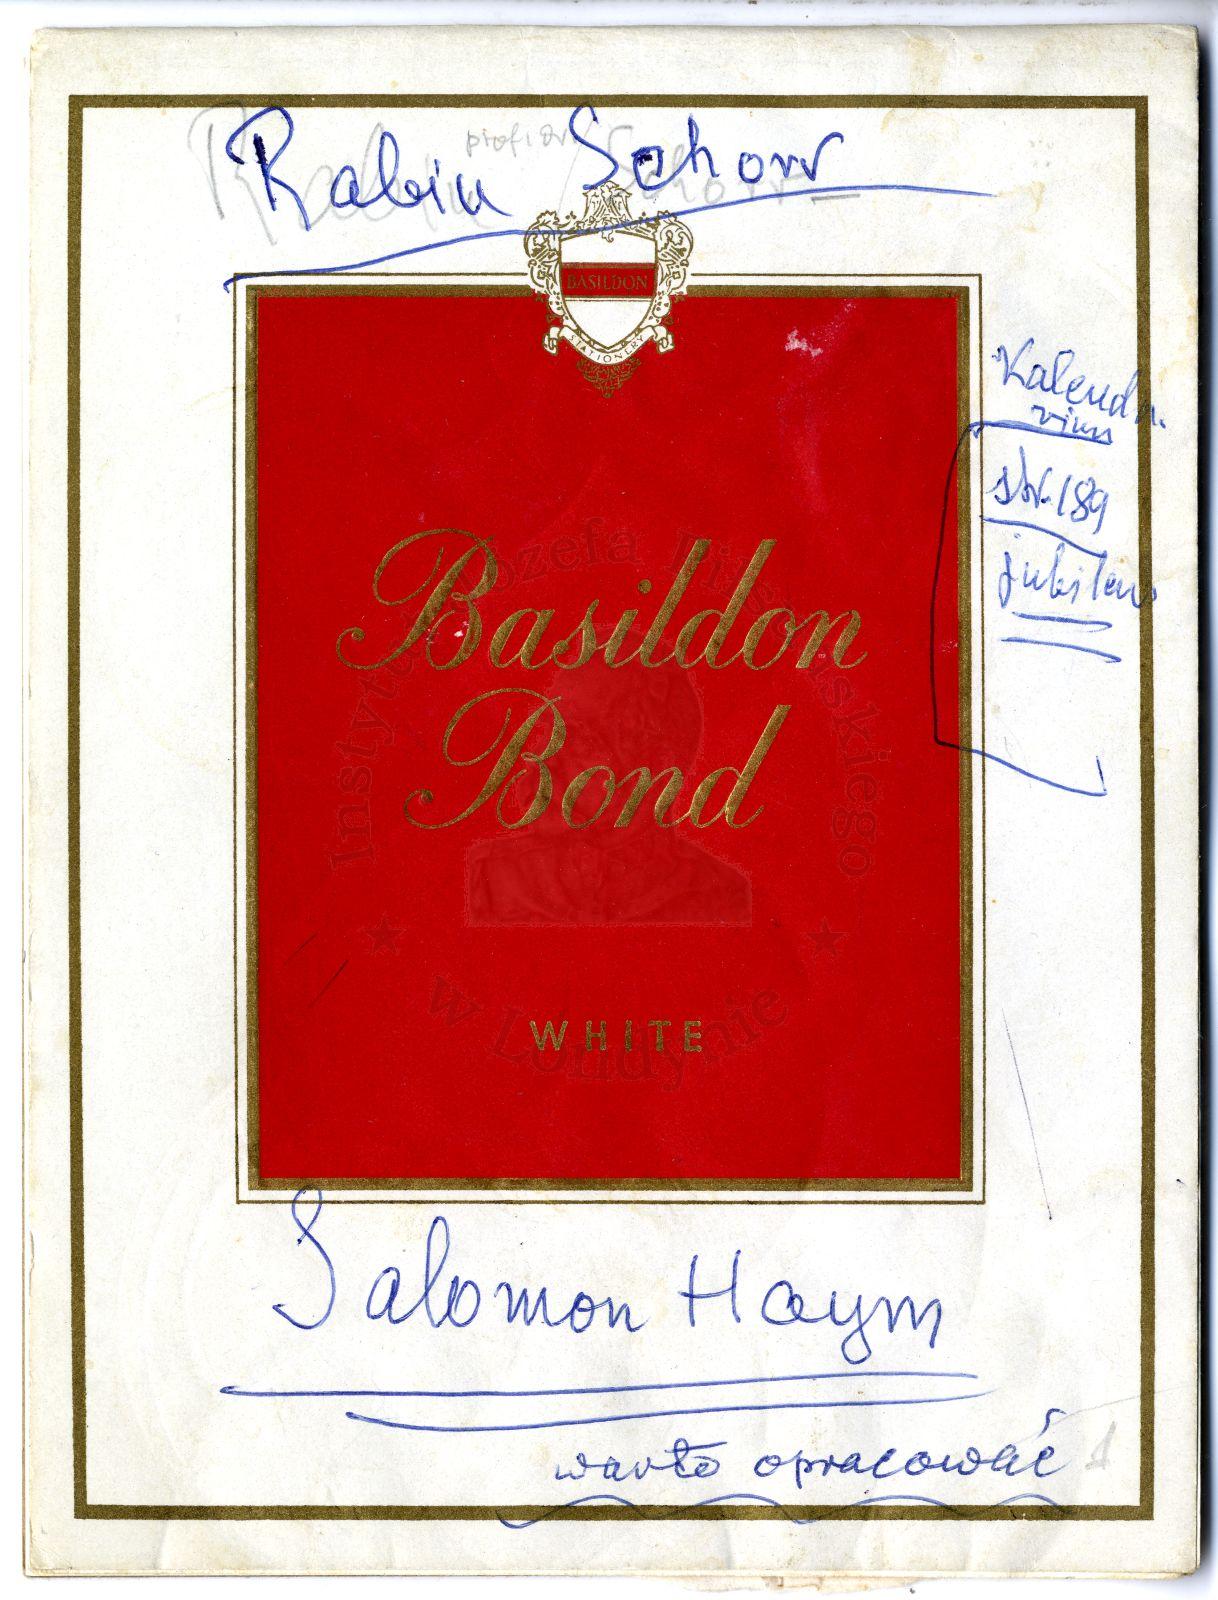 Rabin Schorr
BASILDON
STATIONERY
Kalenda
rium
str. 189
jubileus
Basildon
Bond
WHITE
Instytut Józefa Piłsudskiego
w Londynie
Salomon Haym
warto opracować
1